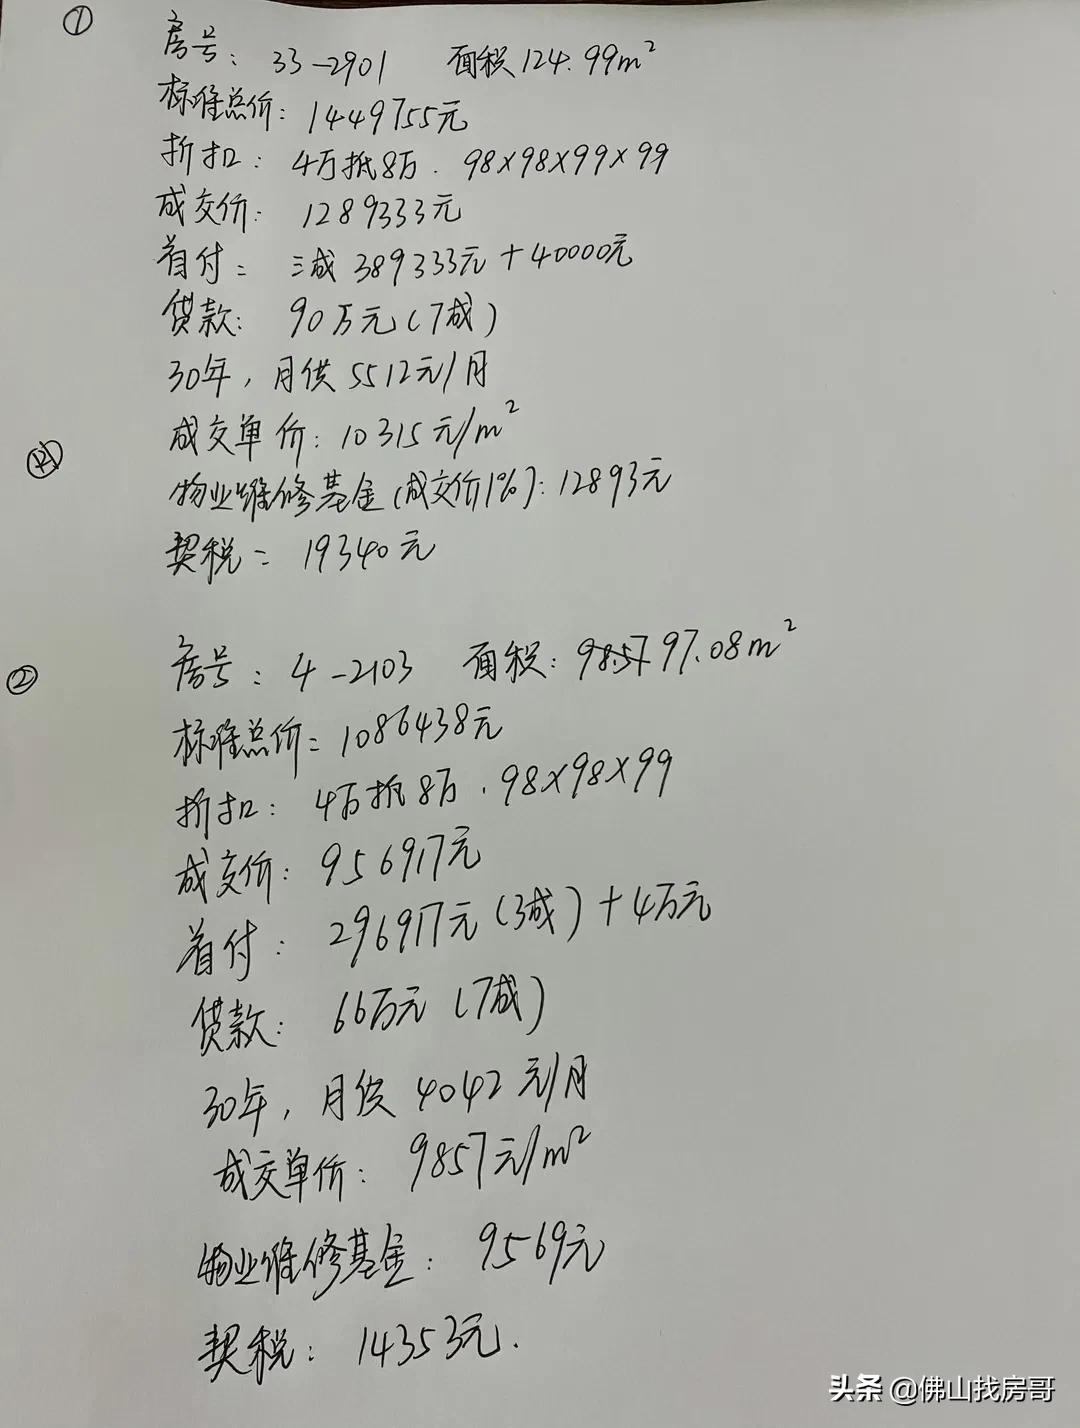 ①
房号: 33-2901 面积124.99m²
标准总价: 1449755元
折扣: 4万抵8万. 98×98×99×99
成交价: 1289333元
首付: 三成 389333元+40000元
贷款: 90万元(7成)
30年, 月供 5512元/月
成交单价: 10315元/m²
物业维修基金(成交价1%): 12893元
契税: 19340元
②
房号: 4-2103 面积: 98.57 97.08m²
标准总价: 1086438元
折扣: 4万抵8万. 98×98×99
成交价: 956917元
首付: 296917元(3成)+4万元
贷款: 66万元(7成)
30年, 月供 4042元/月
成交单价: 9857元/m²
物业维修基金: 9569元
契税: 14353元.
头条 @佛山找房哥